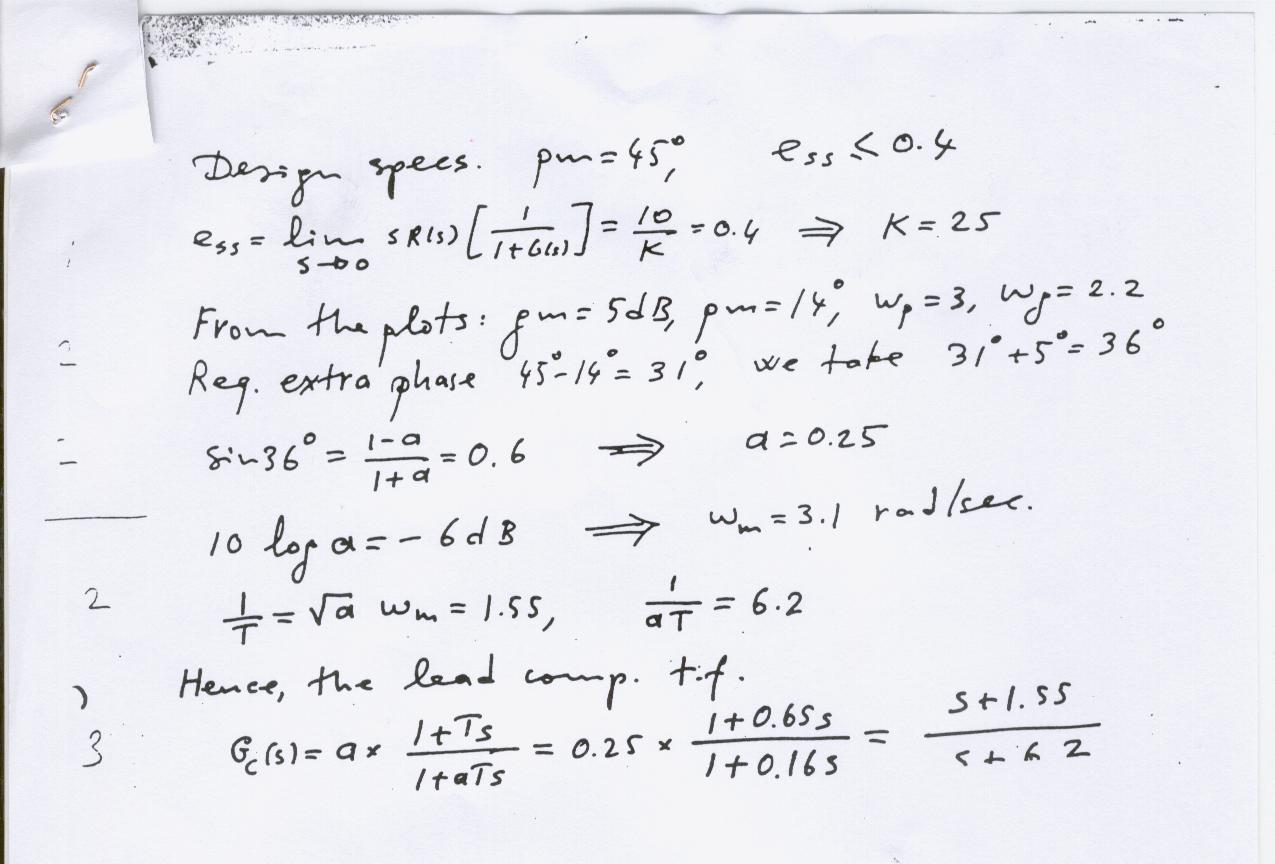 Design specs. pm = 45°, ess ≤ 0.4
ess = lim s→0 sR(s) [1/(1+G(s))] = 10/K = 0.4 ⇒ K = 25
From the plots: gm = 5dB, pm = 14°, wp = 3, wg = 2.2
Req. extra phase 45°-14° = 31°, we take 31°+5° = 36°
sin36° = (1-a)/(1+a) = 0.6 ⇒ a = 0.25
10 log a = -6dB ⇒ wm = 3.1 rad/sec.
2
1/T = √a wm = 1.55, 1/(aT) = 6.2
Hence, the lead comp. t.f.
)
3
Gc(s) = a × (1+Ts)/(1+aTs) = 0.25 × (1+0.65s)/(1+0.16s) = (s+1.55)/(s+6 2)